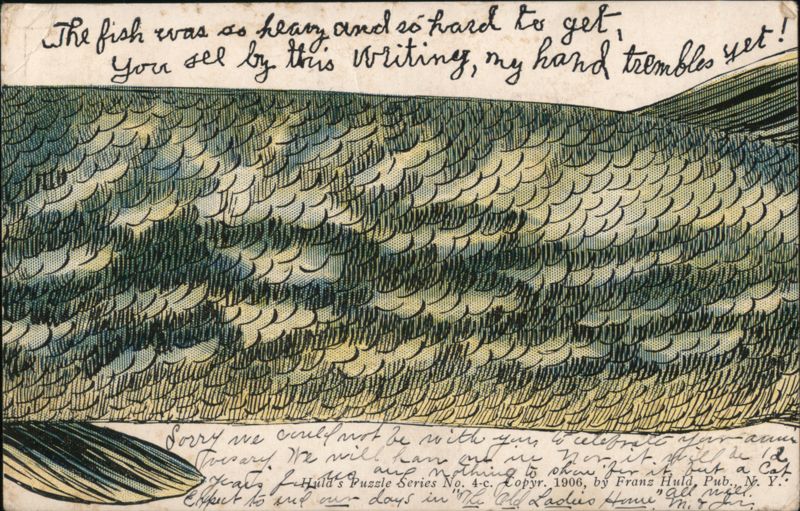 The fish was so heavy and so hard to get,
You see by this writing, my hand trembles yet!
Sorry we could not be with you to celebrate your anni
versary. We will have one in Nov. it will be 12
years for us and nothing to show for it but a Cat
Huld's Puzzle Series No. 4-c. Copyr. 1906, by Franz Huld, Pub., N. Y.
Expect to end our days in "The Old Ladies Home" All well.